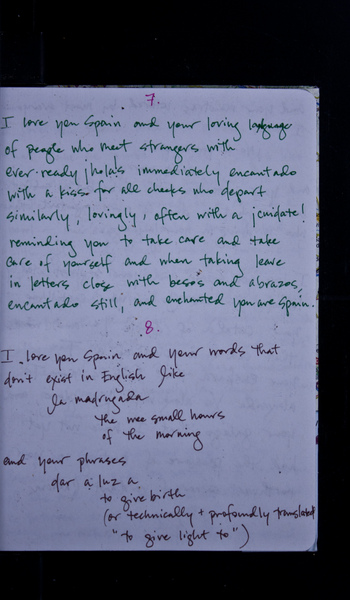 7.
I love you Spain and your loving language
of people who meet strangers with
ever-ready ¡hola!s immediately encantado
with a kiss for all cheeks who depart
similarly, lovingly, often with a ¡cuídate!
reminding you to take care and take
care of yourself and when taking leave
in letters close with besos and abrazos,
encantado still, and enchanted you are Spain.
8.
I love you Spain and your words that
don't exist in English like
la madrugada
the wee small hours
of the morning
and your phrases
dar a luz a
to give birth
(or technically + profoundly translated
"to give light to")